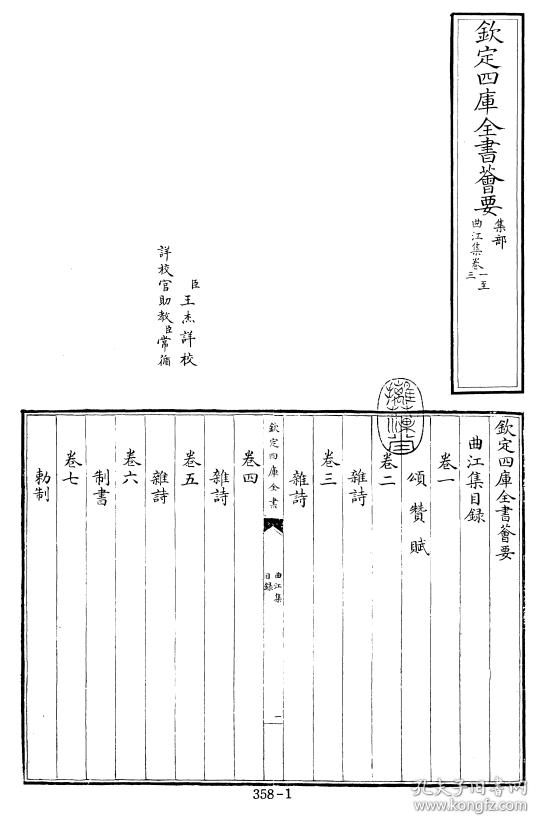 欽定四庫全書薈要
集部
曲江集卷一至三
臣王杰詳校
詳校官助教臣常循
欽定四庫全書薈要
曲江集目録
卷一
頌 贊 賦
卷二
雜詩
卷三
雜詩
欽定四庫全書
曲江集
目録
一
卷四
雜詩
卷五
雜詩
卷六
制書
卷七
勅制
358-1
孔夫子旧书网
www.kongfz.com